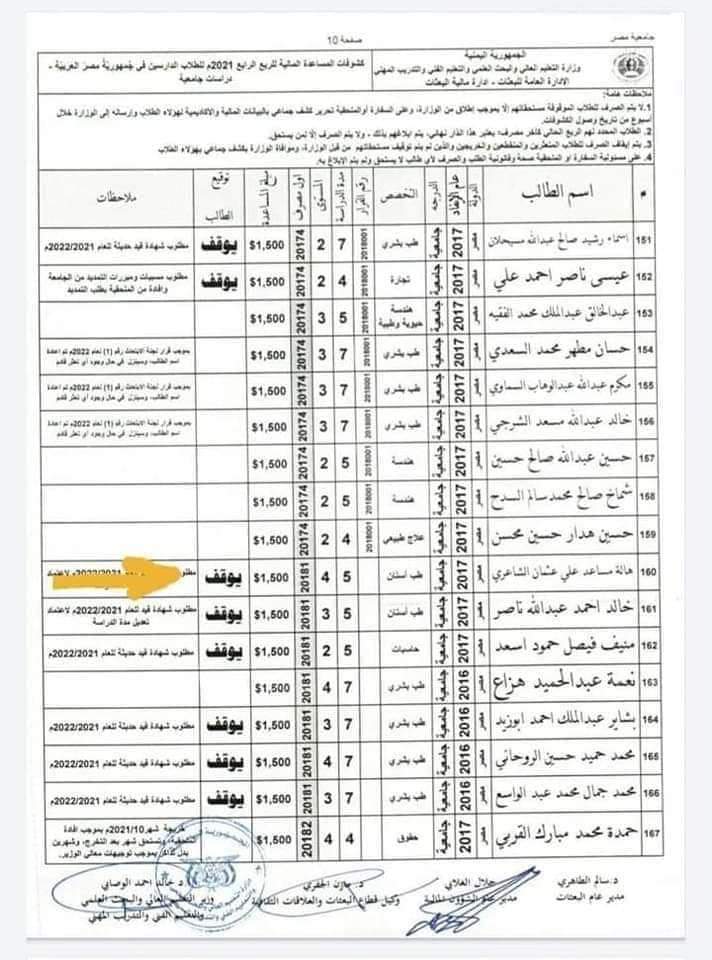 جامعية مصر
صفحة 10
الجمهورية اليمنية
وزارة التعليم العالي والبحث العلمي والتعليم الفني والتدريب المهني
الإدارة العامة للبعثات - ادارة مالية البعثات
كشوفات المساعدة المالية للربع الرابع 2021م للطلاب الدارسين في جُمهوريَّة مصرَ العربيَّة - دراسات جامعية
ملاحظات هامة:
1. لا يتم الصرف للطلاب الموقوفة مستحقاتهم إلا بموجب إطلاق من الوزارة، وعلى السفارة أوالملحقية تحرير كشف جماعي بالبيانات المالية والاكاديمية لهؤلاء الطلاب وإرساله إلى الوزارة خلال
أسبوع من تاريخ وصول الكشوفات.
2. الطلاب المحدد لهم الربع الحالي كآخر مصرف، يعتبر هذا انذار نهائي، يتم إبلاغهم بذلك - ولا يتم الصرف إلا لمن يستحق.
3. يتم إيقاف الصرف للطلاب المتعثرين والمنقطعين والخريجين والذين لم يتم توقيف مستحقاتهم من قبل الوزارة، وموافاة الوزارة بكشف جماعي بهؤلاء الطلاب
4. على مسئولية السفارة او الملحقية صحة وقانونية الطلاب والصرف لأي طالب لا يستحق ولم يتم الإبلاغ به.
# اسم الطالب الدولة عام الإيفاد الدرجه التخصص رقم القرار مدة الدراسة المستوى اول مصرف مبلغ المساعدة توقيع الطالب ملاحظات
151 اسماء رشيد صالح عبدالله مسيحلان مصر 2017 جامعية طب بشري 2018001 7 2 20174 $1,500 يوقف مطلوب شهادة قيد حديثة للعام 2022/2021م
152 عيسى ناصر احمد علي مصر 2017 جامعية تجارة 2018001 4 2 20174 $1,500 يوقف مطلوب مسببات ومبررات التمديد من الجامعة وافادة من الملحقية بطلب التمديد
153 عبدالخالق عبدالملك محمد الفقيه مصر 2017 جامعية هندسة حيوية وطبية 2018001 5 3 20174 $1,500
154 حسان مطهر محمد السعدي مصر 2017 جامعية طب بشري 2018001 7 3 20174 $1,500 بموجب قرار لجنة الابتعاث رقم (1) لعام 2022م تم اعادة اسم الطالب، وسينزل في حال وجود أي تعثر قادم
155 مكرم عبدالله عبدالوهاب السماوي مصر 2017 جامعية طب بشري 2018001 7 3 20174 $1,500 بموجب قرار لجنة الابتعاث رقم (1) لعام 2022م تم اعادة اسم الطالب، وسينزل في حال وجود أي تعثر قادم
156 خالد عبدالله مسعد الشرجي مصر 2017 جامعية طب بشري 2018001 7 3 20174 $1,500 بموجب قرار لجنة الابتعاث رقم (1) لعام 2022م تم اعادة اسم الطالب، وسينزل في حال وجود أي تعثر قادم
157 حسين عبدالله صالح حسين مصر 2017 جامعية هندسة 2018001 5 2 20174 $1,500
158 شماخ صالح محمد سالم السدح مصر 2017 جامعية هندسة 2018001 5 2 20174 $1,500
159 حسين هدار حسين محسن مصر 2017 جامعية علاج طبيعي 2018001 4 2 20174 $1,500
160 هالة مساعد علي عثمان الشاعري مصر 2017 جامعية طب أسنان 5 4 20181 $1,500 يوقف
161 خالد احمد عبدالله ناصر مصر 2017 جامعية طب أسنان 5 3 20181 $1,500 يوقف مطلوب شهادة قيد للعام 2022/2021م لاعتماد تعديل مدة الدراسة
162 منيف فيصل حمود اسعد مصر 2017 جامعية حاسبات 5 2 20181 $1,500 يوقف مطلوب شهادة قيد حديثة للعام 2022/2021م
163 نعمة عبدالحميد هزاع مصر 2016 جامعية طب بشري 7 4 20181 $1,500
164 بشاير عبدالملك احمد ابوزيد مصر 2016 جامعية طب بشري 7 3 20181 $1,500 يوقف مطلوب شهادة قيد حديثة للعام 2022/2021م
165 محمد حميد حسين الروحاني مصر 2016 جامعية طب بشري 7 4 20181 $1,500 يوقف مطلوب شهادة قيد حديثة للعام 2022/2021م
166 محمد جمال محمد عبد الواسع مصر 2016 جامعية طب بشري 7 3 20181 $1,500 يوقف مطلوب شهادة قيد حديثة للعام 2022/2021م
167 حمدة محمد مبارك القربي مصر 2017 جامعية حقوق 4 4 20182 $1,500 خريجة شهر 2021/10م بموجب افادة الملحقية، وتستحق شهر بعد التخرج، وشهرين بدل تذاكر بموجب توجيهات معالي الوزير.
د. سالم الطاهري
مدير عام البعثات
جلال العلابي
مدير عام الشؤون المالية
د. مازن الجفري
وكيل قطاع البعثات والعلاقات الثقافية
د. خالد احمد الوصابي
وزير التعليم العالي والبحث العلمي
والتعليم الفني والتدريب المهني